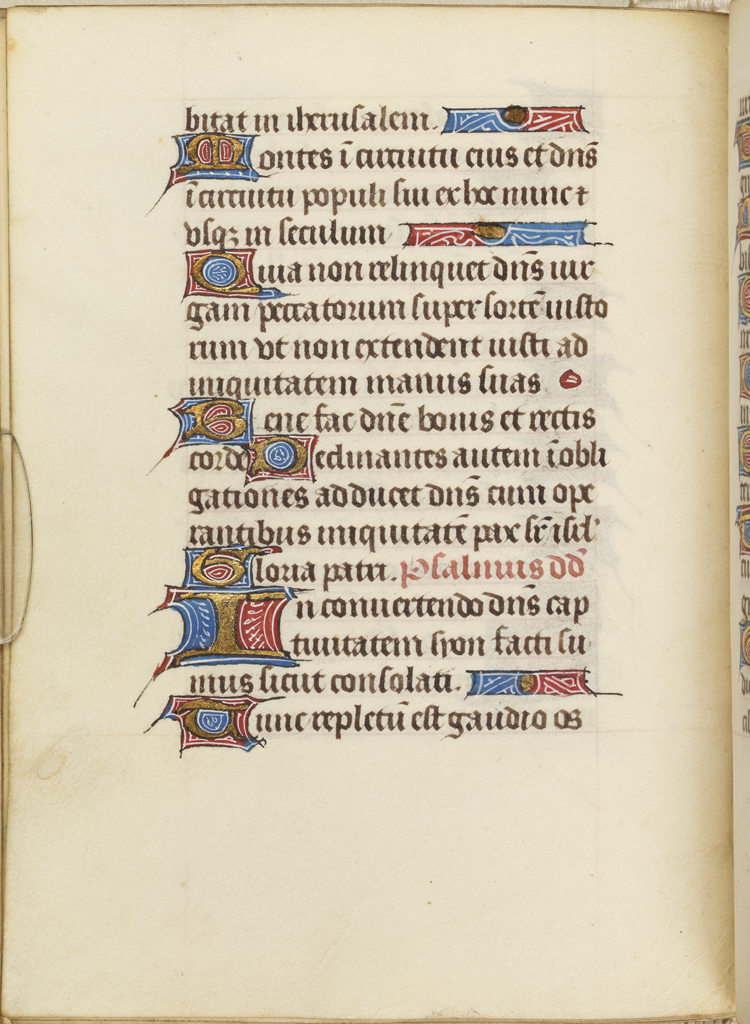 bitat in iherusalem.
Montes ī circuitu eius et dn̄s
ī circuitu populi sui ex hoc nunc ⁊
vsqꝫ in seculum
Quia non relinquet dn̄s uir
gam peccatorum super sortē iusto
rum vt non extendent iusti ad
iniquitatem manus suas
Bene fac dn̄e bonis et rectis
corde Declinantes autem ī obli
gationes adducet dn̄s cum ope
rantibus iniquitatē pax sr̄ isrl'
Gloria patri. Psalmus dd̄
In conuertendo dn̄s cap
tiuitatem syon facti su
mus sicut consolati.
Tunc repletū est gaudio os